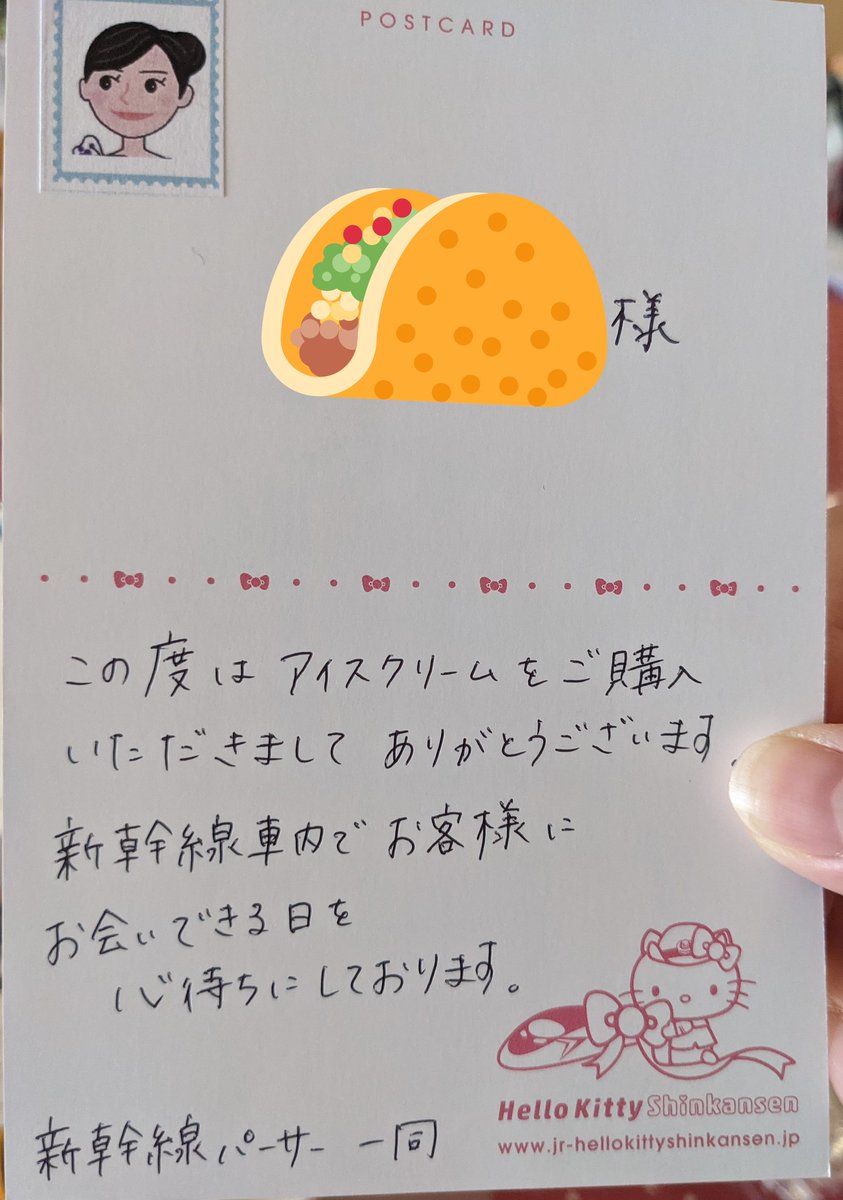 POSTCARD
様
この度は アイスクリームをご購入
いただきまして ありがとうございます。
新幹線車内で お客様に
お会いできる日を
心待ちにしております。
Hello Kitty Shinkansen
www.jr-hellokittyshinkansen.jp
新幹線パーサー 一同